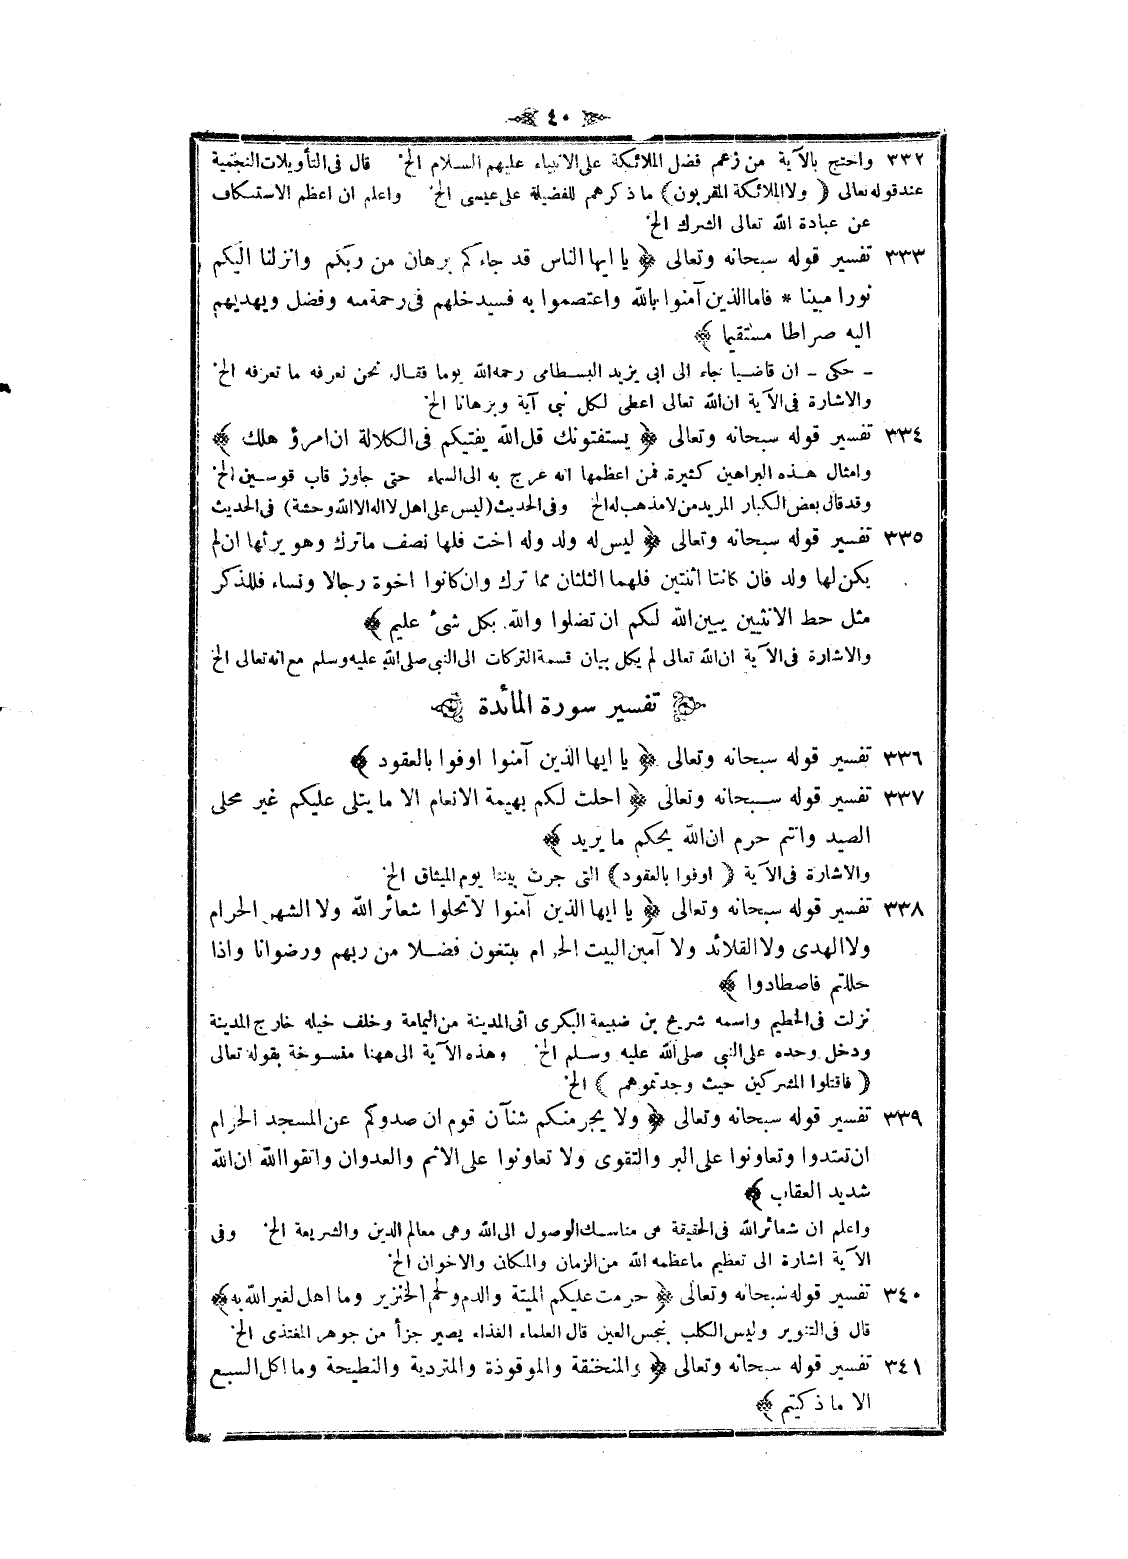 ٤٠
٣٣٢ واحتج بالآية من زعم فضل الملائكة على الانبياء عليهم السلام الخ قال فى التأويلات النجمية
عند قوله تعالى ( ولا الملائكة المقربون ) ما ذكرهم للفضيلة على عيسى الخ واعلم ان اعظم الاستنكاف
عن عبادة الله تعالى الشرك الخ
٣٣٣ تفسير قوله سبحانه وتعالى ﴿ يا ايها الناس قد جاءكم برهان من ربكم وانزلنا اليكم
نورا مبينا * فاما الذين آمنوا بالله واعتصموا به فسيدخلهم فى رحمة منه وفضل ويهديهم
اليه صراطا مستقيما ﴾
ـ حكى ـ ان قاضيا جاء الى ابى يزيد البسطامى رحمه الله يوما فقال نحن نعرفه ما تعرفه الخ
والاشارة فى الآية ان الله تعالى اعطى لكل نبى آية وبرهانا الخ
٣٣٤ تفسير قوله سبحانه وتعالى ﴿ يستفتونك قل الله يفتيكم فى الكلالة ان امرؤ هلك ﴾
وامثال هذه البراهين كثيرة فمن اعظمها انه عرج به الى السماء حتى جاوز قاب قوسين الخ
وقد قال بعض الكبار المريد من لا مذهب له الخ وفى الحديث ( ليس على اهل لا اله الا الله وحشة ) فى الحديث
٣٣٥ تفسير قوله سبحانه وتعالى ﴿ ليس له ولد وله اخت فلها نصف ما ترك وهو يرثها ان لم
يكن لها ولد فان كانتا اثنتين فلهما الثلثان مما ترك وان كانوا اخوة رجالا ونساء فللذكر
مثل حظ الانثيين يبين الله لكم ان تضلوا والله بكل شئ عليم ﴾
والاشارة فى الآية ان الله تعالى لم يكل بيان قسمة التركات الى النبى صلى الله عليه وسلم مع انه تعالى الخ
تفسير سورة المائدة
٣٣٦ تفسير قوله سبحانه وتعالى ﴿ يا ايها الذين آمنوا اوفوا بالعقود ﴾
٣٣٧ تفسير قوله سبحانه وتعالى ﴿ احلت لكم بهيمة الانعام الا ما يتلى عليكم غير محلى
الصيد وانتم حرم ان الله يحكم ما يريد ﴾
والاشارة فى الآية ( اوفوا بالعقود ) التى جرت بيننا يوم الميثاق الخ
٣٣٨ تفسير قوله سبحانه وتعالى ﴿ يا ايها الذين آمنوا لا تحلوا شعائر الله ولا الشهر الحرام
ولا الهدى ولا القلائد ولا آمين البيت الحرام يبتغون فضلا من ربهم ورضوانا واذا
حللتم فاصطادوا ﴾
نزلت فى الحطيم واسمه شريح بن ضبيعة البكرى اتى المدينة من اليمامة وخلف خيله خارج المدينة
ودخل وحده على النبى صلى الله عليه وسلم الخ وهذه الآية الى ههنا منسوخة بقوله تعالى
( فاقتلوا المشركين حيث وجدتموهم ) الخ
٣٣٩ تفسير قوله سبحانه وتعالى ﴿ ولا يجرمنكم شنآن قوم ان صدوكم عن المسجد الحرام
ان تعتدوا وتعاونوا على البر والتقوى ولا تعاونوا على الاثم والعدوان واتقوا الله ان الله
شديد العقاب ﴾
واعلم ان شعائر الله فى الحقيقة هى مناسك الوصول الى الله وهى معالم الدين والشريعة الخ وفى
الآية اشارة الى تعظيم ما عظمه الله من الزمان والمكان والاخوان الخ
٣٤٠ تفسير قوله سبحانه وتعالى ﴿ حرمت عليكم الميتة والدم ولحم الخنزير وما اهل لغير الله به ﴾
قال فى التنوير وليس الكلب بنجس العين قال العلماء الغذاء يصير جزأ من جوهر المغتذى الخ
٣٤١ تفسير قوله سبحانه وتعالى ﴿ والمنخنقة والموقوذة والمتردية والنطيحة وما اكل السبع
الا ما ذكيتم ﴾